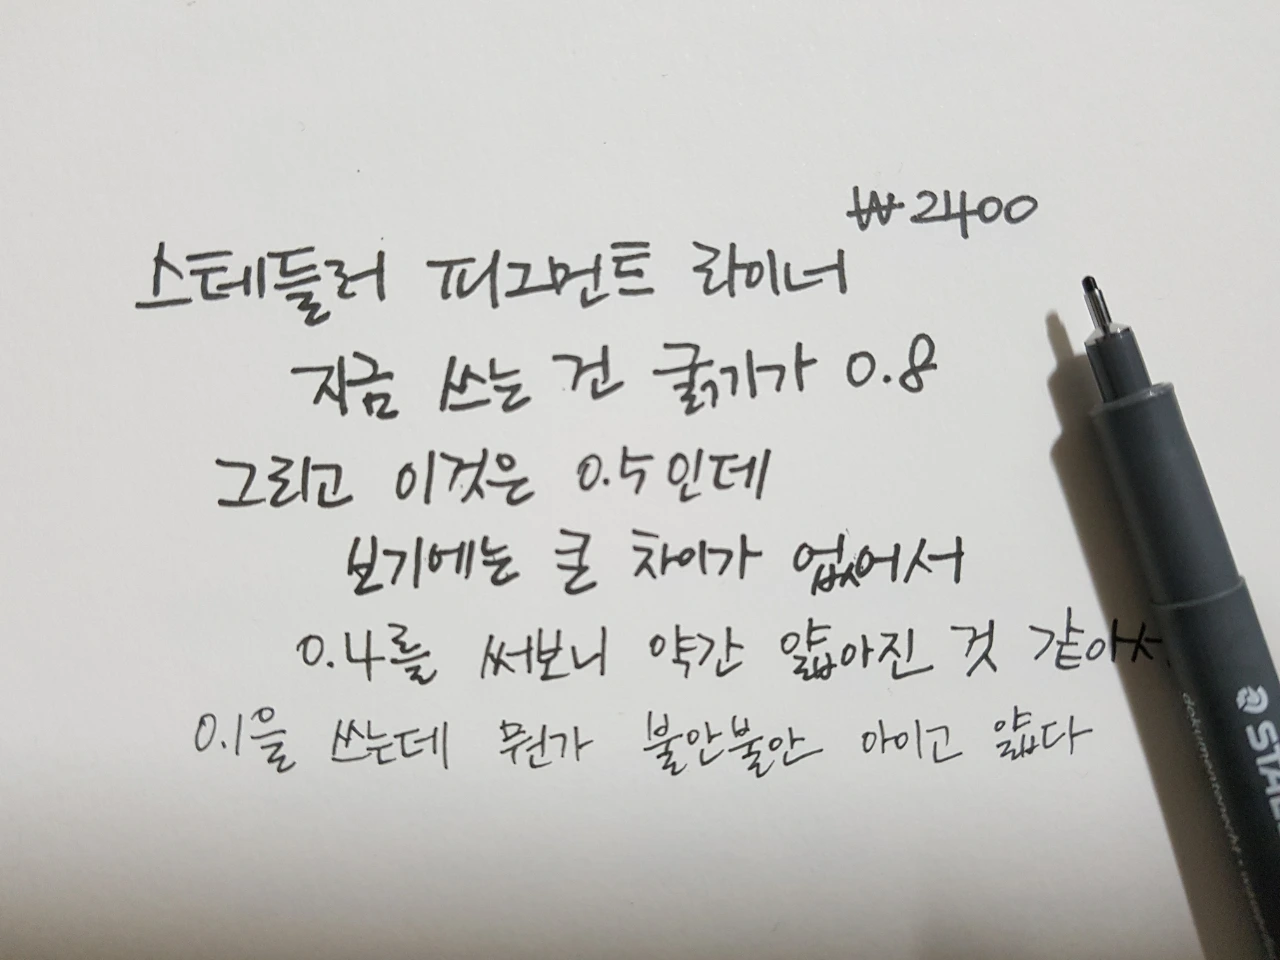 ₩2400
스테들러 피그먼트 라이너
지금 쓰는 건 굵기가 0.8
그리고 이것은 0.5인데
보기에는 큰 차이가 없어서
0.4를 써보니 약간 얇아진 것 같아서.
0.1을 쓰는데 뭔가 불안불안 아이고 얇다
dokumentenecht
STAE